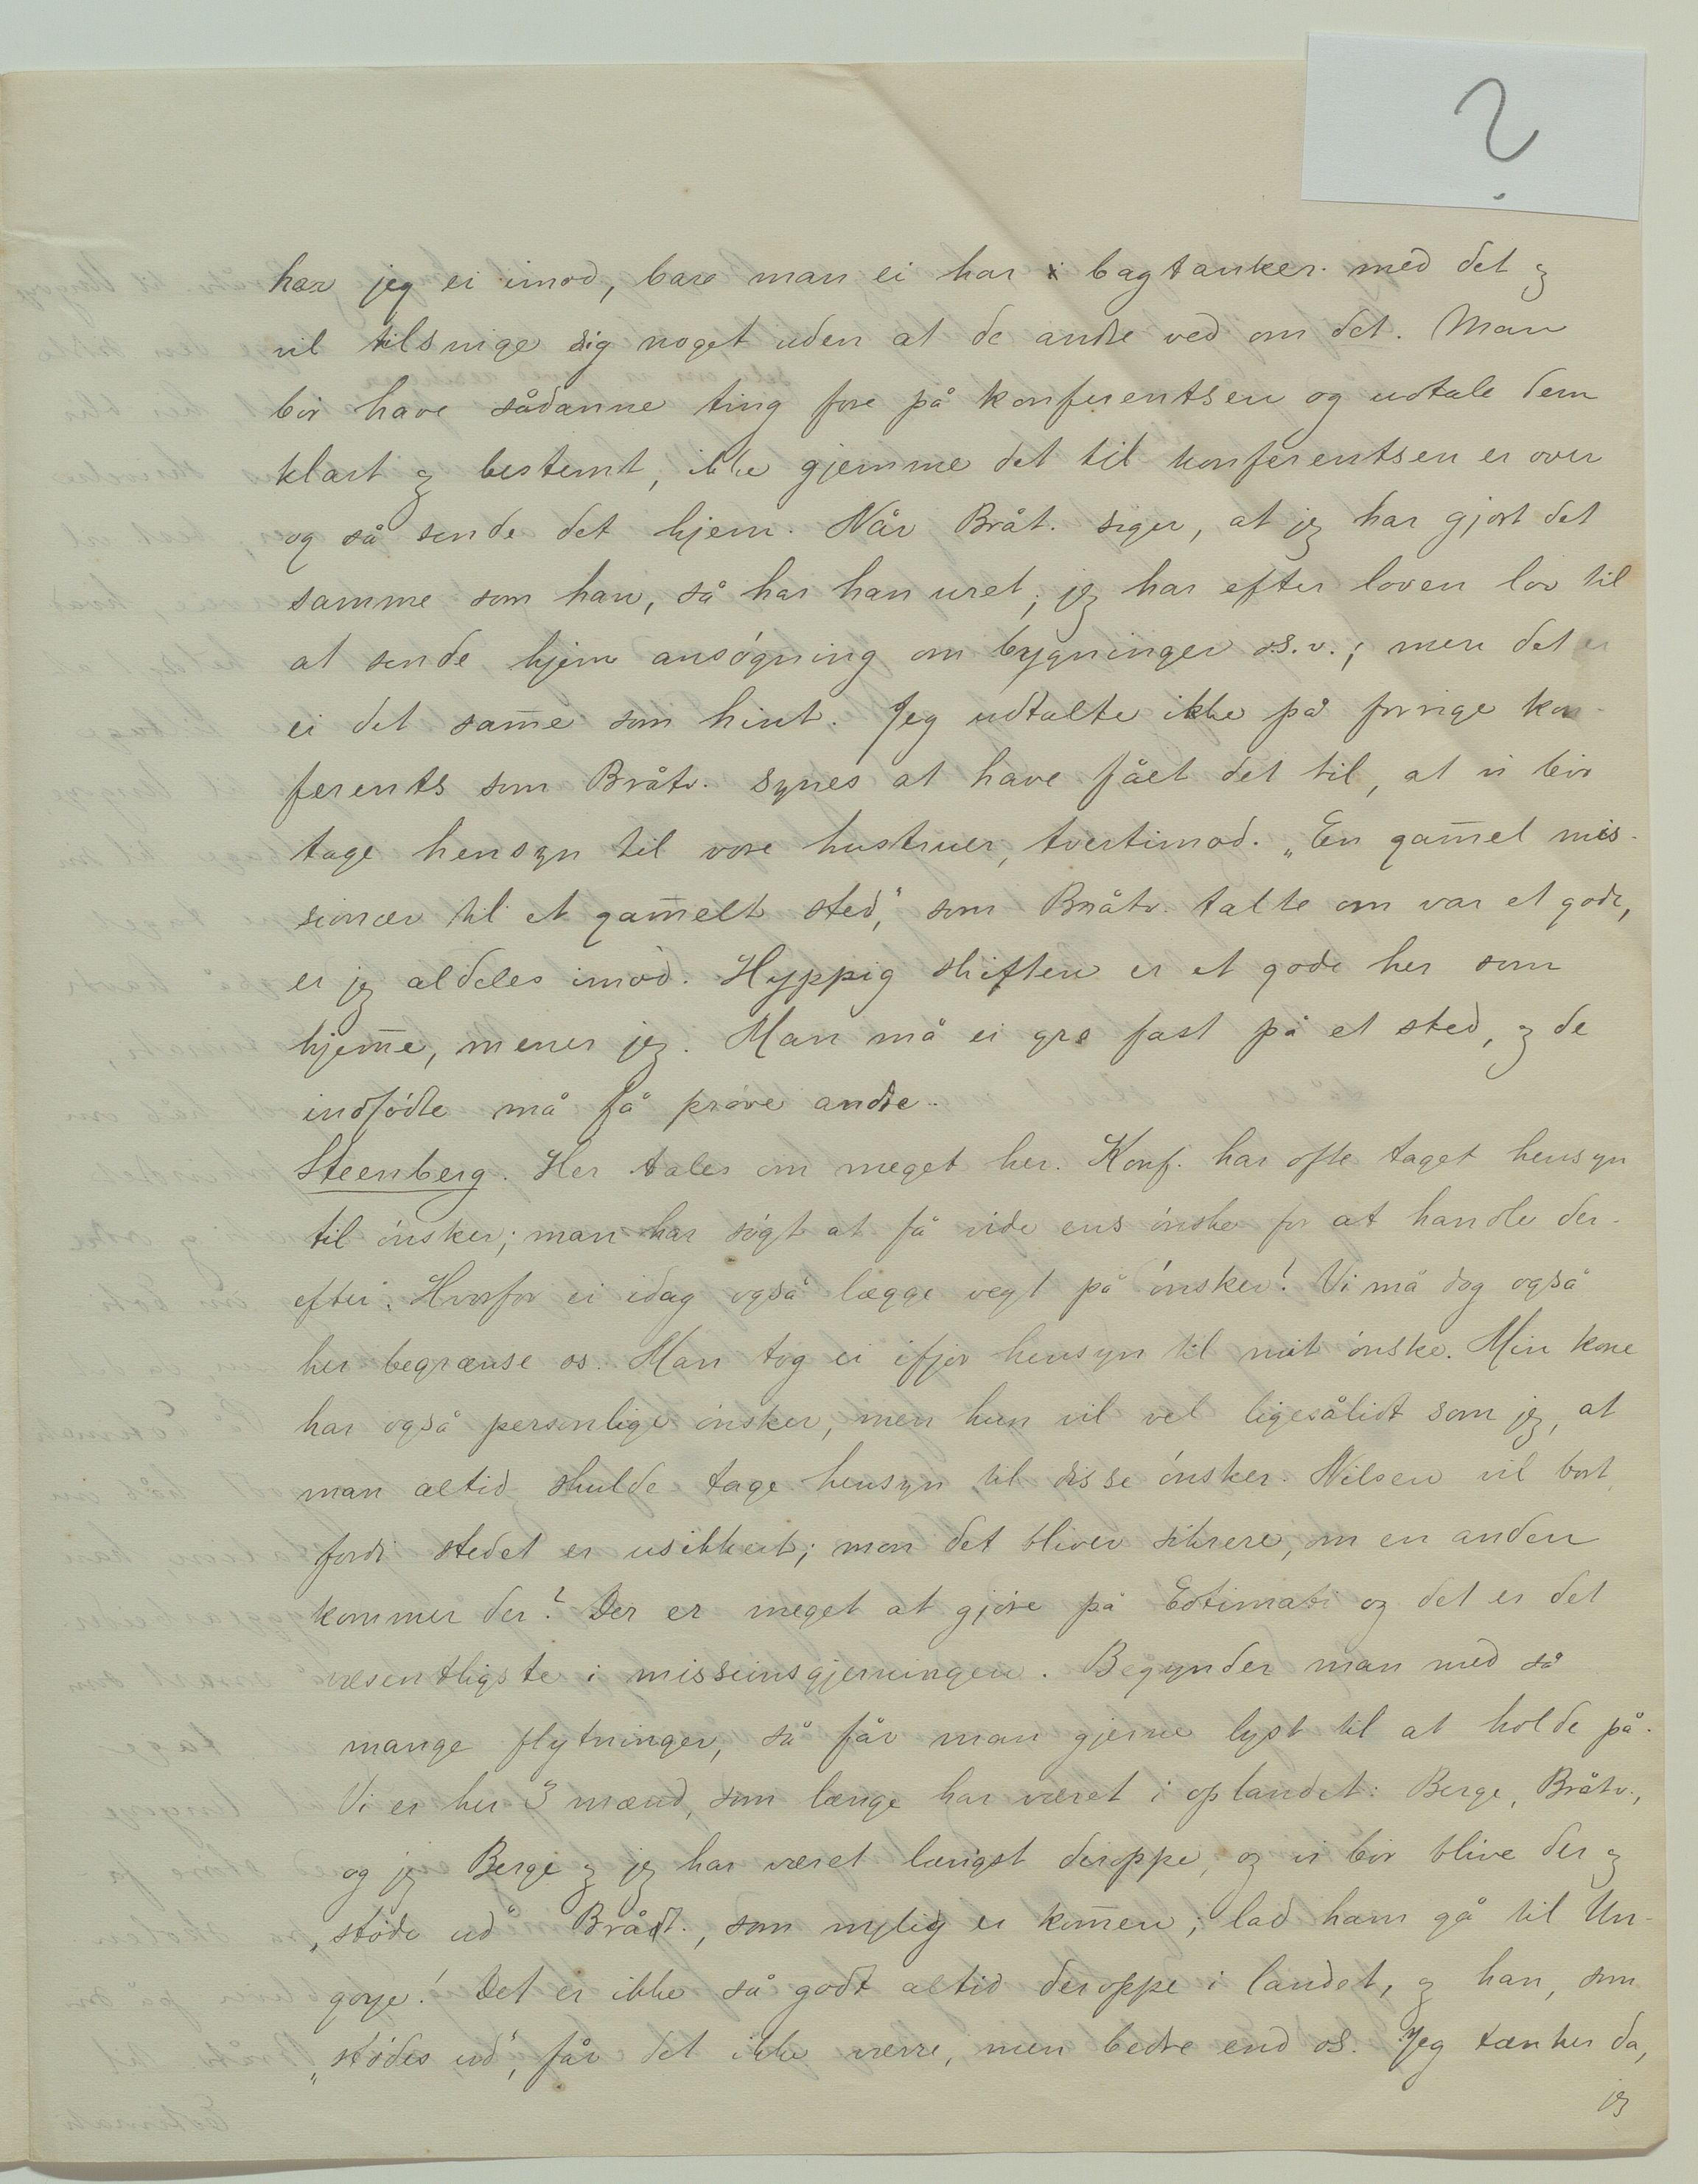 ?
har jeg ei imod, bare man ei har bagtanker med det og
vil tilsnige sig noget uden at de andre ved om det. Man
bør have sådanne ting fore på konferentsen og udtale dem
klart og bestemt, ikke gjemme det til konferentsen er over
og så sende det hjem. Når Bråt. siger, at jeg har gjort det
samme som han, så har han uret; jeg har efter loven lov til
at sende hjem ansøgning om bygninger o.s.v.; men det er
ei det sam̄e som hint. Jeg udtalte ikke på forrige kon-
ferents som Bråtv. synes at have fået det til, at vi bør
tage hensyn til vore hustruer, tvertimod. „En gam̄el mis-
sionær til et gam̄elt sted,“ som Bråtv. talte om var et gode,
er jeg aldeles imod. Hyppig skiften er et gode her som
hjem̄e, mener jeg. Man må ei gro fast på et sted, og de
indfødte må få prøve andre.
Steenberg. Her tales om meget her. Konf. har ofte taget hensyn
til ønsker; man har søgt at få vide ens ønske for at handle der-
efter. Hvorfor ei idag også lægge vegt på ønsker! Vi må dog også
her begrænse os. Man tog ei ifjor hensyn til mit ønske. Min kone
har også personlige ønsker, men hun vil vel ligesålidt som jeg, at
man altid skulde tage hensyn til disse ønsker. Nilsen vil bort,
fordi stedet er usikkert; mon det bliver sikrere, om en anden
kommer der? Der er meget at gjøre på Eotimati og det er det
væsentligste i missionsgjerningen. Begynder man med så
mange flytninger, så får man gjerne lyst til at holde på.
Vi er her 3 mænd, som længe har været i oplandet: Berge, Bråtv.,
og jeg Berge og jeg har været længst deroppe, og vi bør blive der og
„støde ud“ Bråt., som nylig er kom̄en; lad ham gå til Un-
goye! Det er ikke så godt altid deroppe i landet, og han, som
„stødes ud“, får det ikke værre, men bedre end os. Jeg tænker da,
jeg